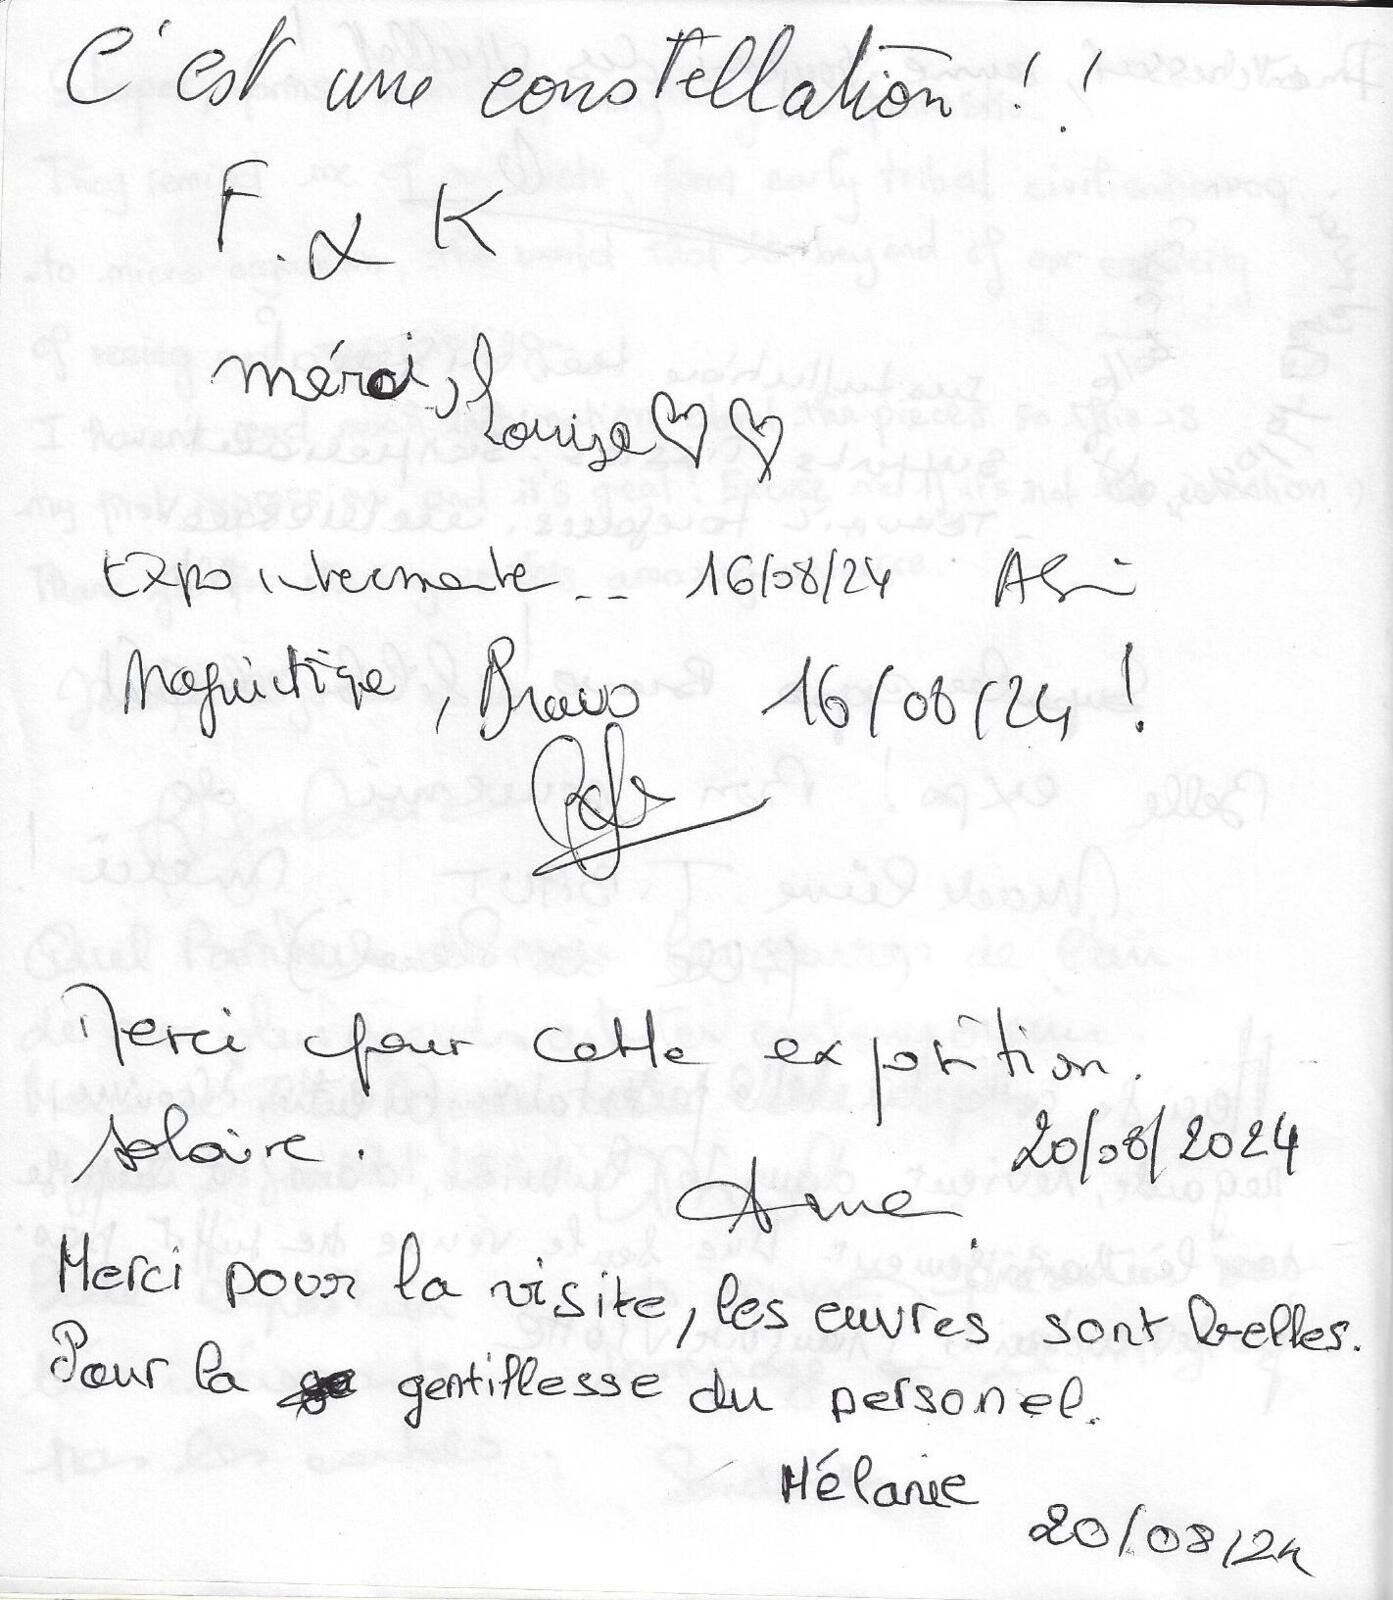 C'est une constellation ! !
F. & K
mérci, Louise ♡♡
Expo interessante -- 16/08/24
Magnifique, Bravo 16/08/24 !
Merci pour cette exposition.
solaire.
20/08/2024
Anne.
Merci pour la visite, les œuvres sont belles.
Pour la gentillesse du personel.
Mélanie
20/08/24